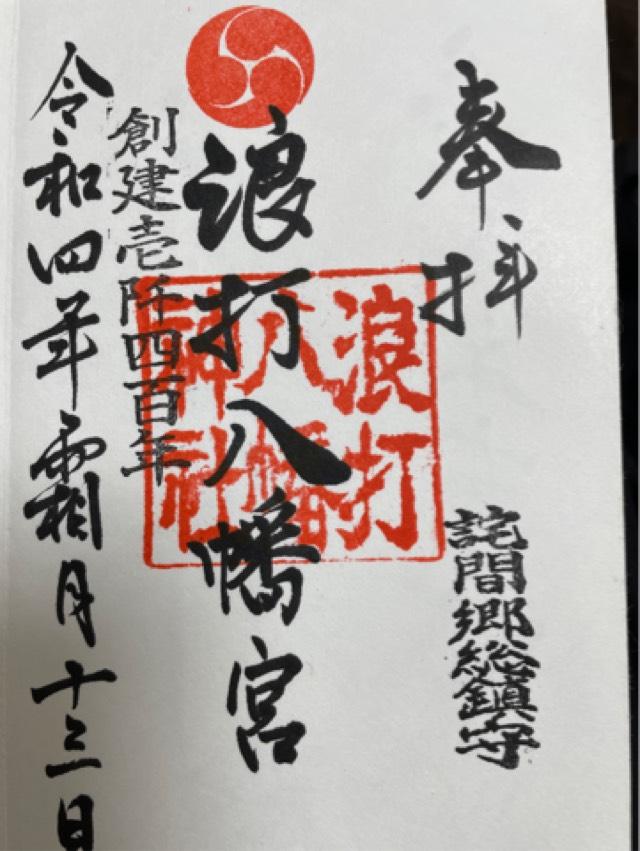 奉拝
詫間郷総鎮守
浪打八幡宮
浪打
八幡
神社
創建壱阡四百年
令和四年霜月十三日